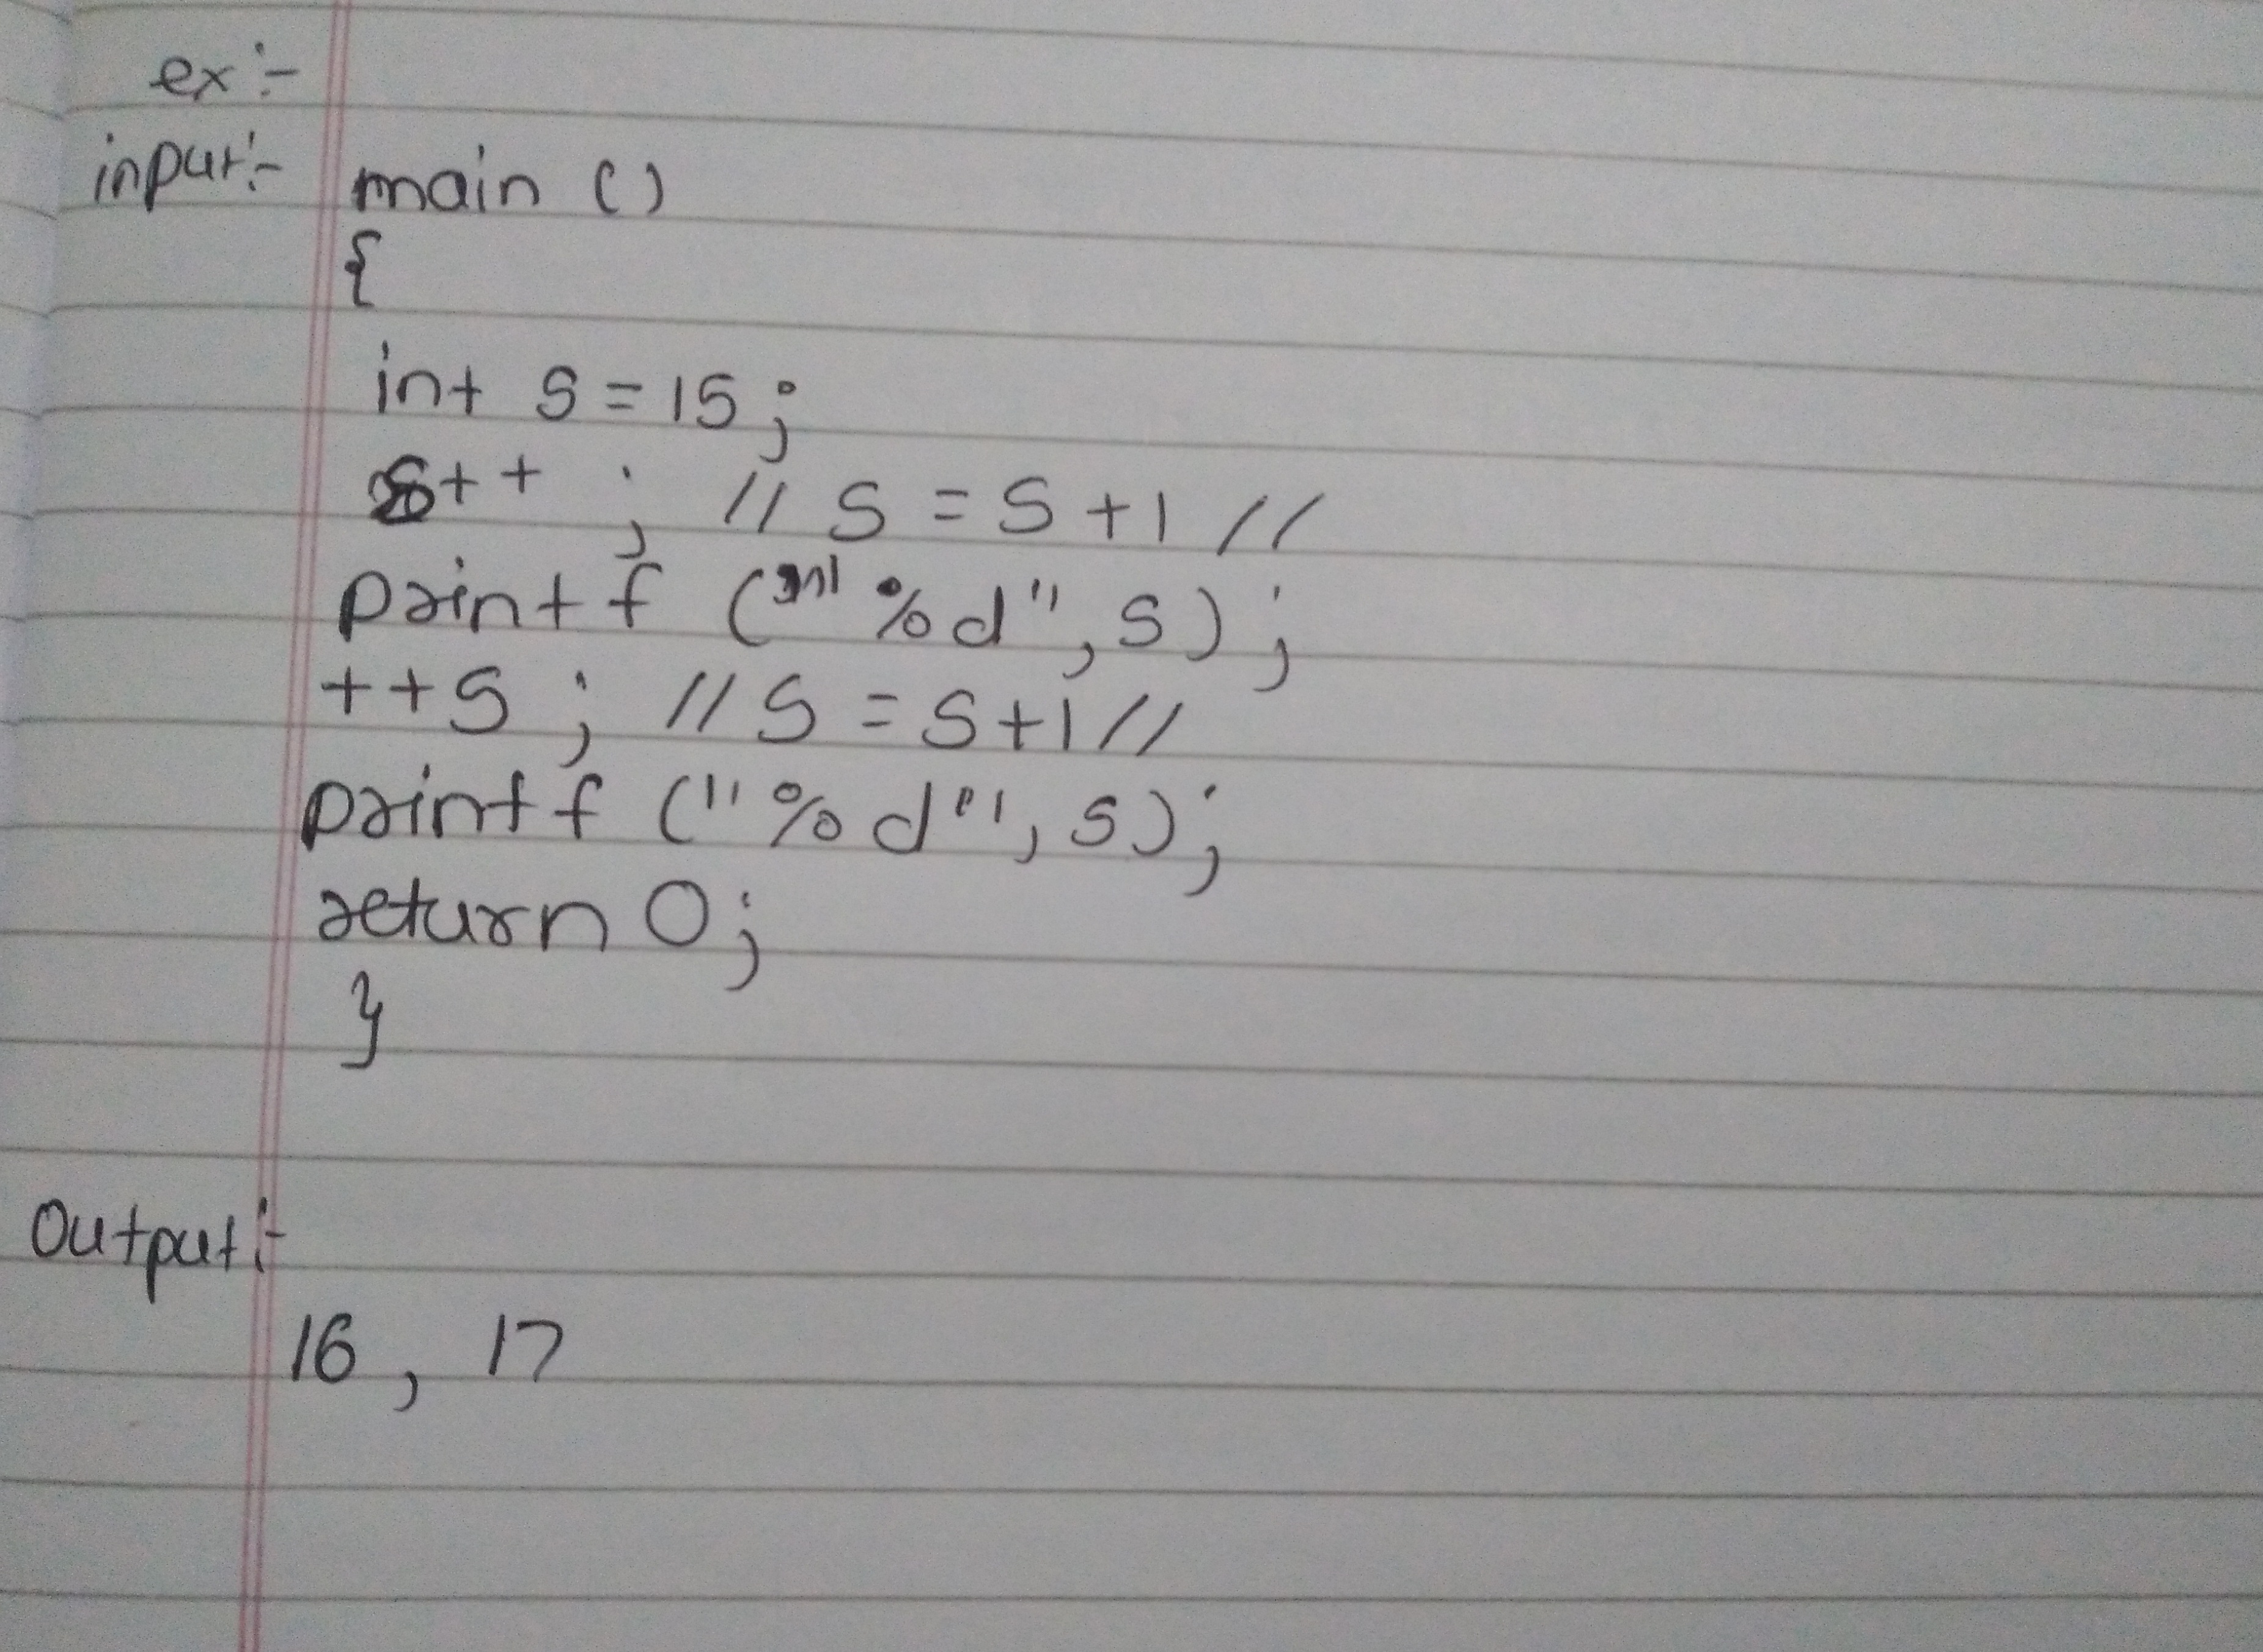 ex:-
input:- main ()
{
int s = 15;
s++ ; // s = s + 1 //
printf (" %d", s);
++s ; // s = s+1 //
printf ("%d", s);
return 0;
}
Output:-
16, 17